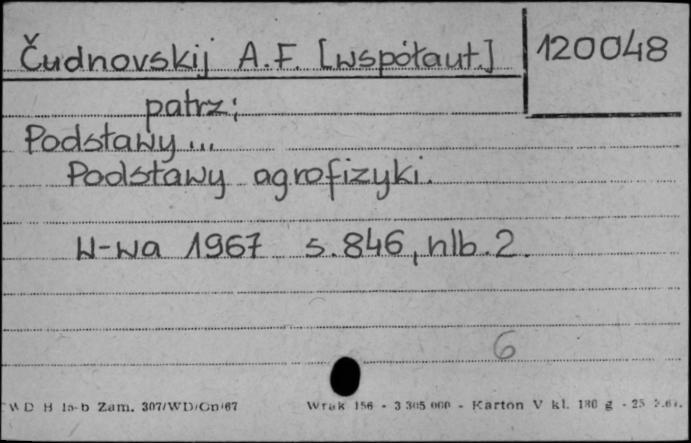 Čudnovskij A.F. [współaut.] 120048
patrz:
Podstawy...
Podstawy agrofizyki.
W-wa 1967 s.846, nlb.2.
6
WD H 1a-b Zam. 307/WD/Gn/67 Wrak 156 - 3 305 000 - Karton V kl. 180 g - 25